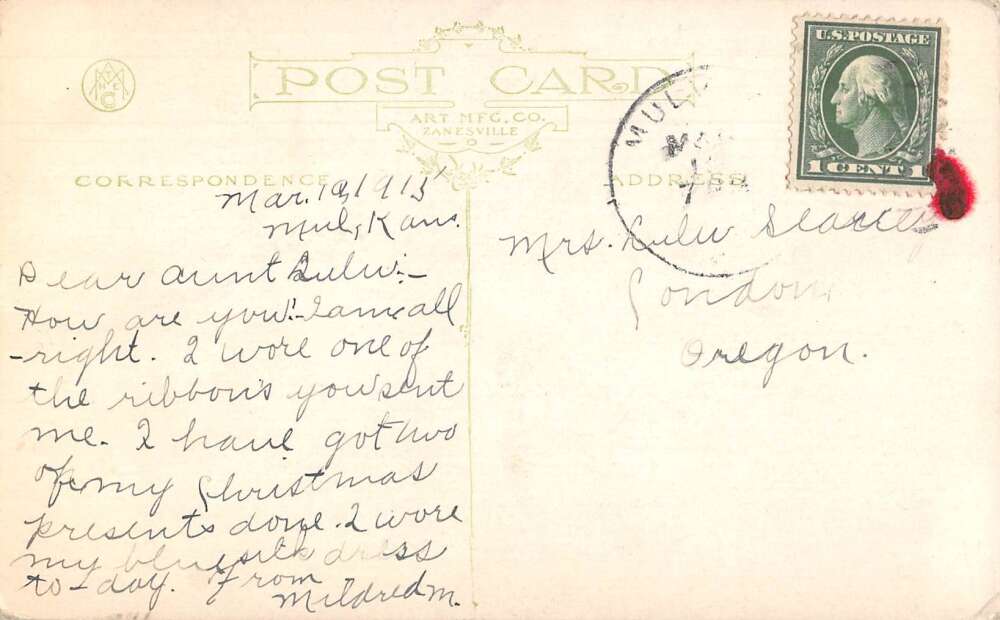 POST CARD
ART MFG. CO.
ZANESVILLE
CORRESPONDENCE
ADDRESS
U.S. POSTAGE
1 CENT 1
MUL
Mar. 19, 1913
Mul, Kans.
Dear aunt Lulu:-
How are you!-I am all
-right. I wore one of
the ribbons you sent
me. I have got two
of my Christmas
presents done. I wore
my blue silk dress
to-day. From
Mildred M.
Mrs. Lulu
London
Oregon.